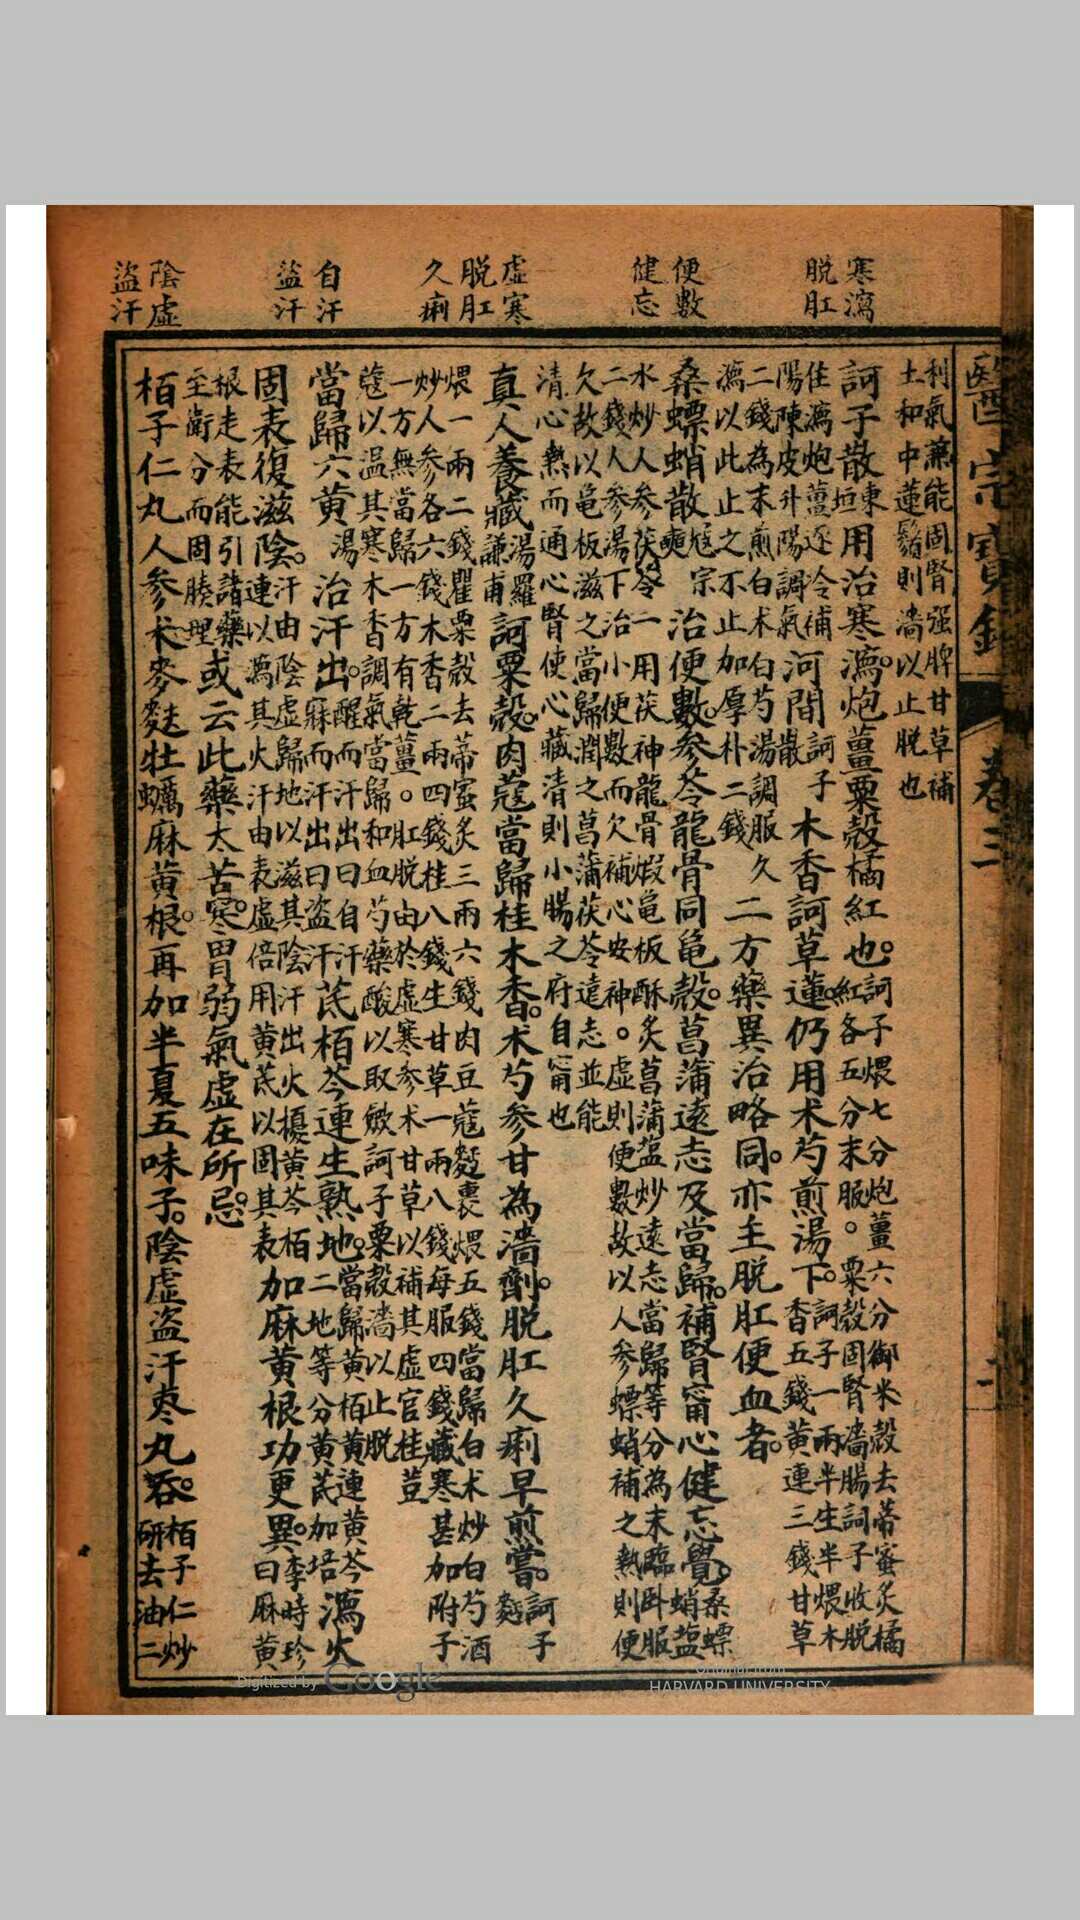 寒瀉
脫肛
便數
健忘
虛寒
脫肛
久痢
自汗
盜汗
陰虛
盜汗
卷三
利氣兼能固腎强脾甘草補
土和中蓮鬚則濇以止脫也
訶子散東垣用治寒瀉。炮薑粟殼橘紅也。訶子煨七分炮薑六分御米殼去蒂蜜炙橘紅各五分末服。粟殼固腎濇腸訶子收脫
住瀉炮薑逐冷補陽陳皮升陽調氣河間訶子散木香訶草蓮。仍用术芍煎湯下。訶子一兩半生半煨木香五錢黄連三錢甘草
二錢為末煎白术白芍湯調服久瀉以此止之不止加厚朴二錢二方藥異治略同。亦主脫肛便血者。
桑螵蛸散寇宗奭治便數。參苓龍骨同龜殼。菖蒲遠志及當歸。補腎甯心健忘覺。桑螵蛸鹽
水炒人參茯苓一用茯神龍骨煅龜板酥炙菖蒲鹽炒遠志當歸等分為末臨卧服
二錢人參湯下治小便數而欠補心安神。虛則便數故以人參螵蛸補之熱則便
欠故以龜板滋之當歸潤之菖蒲茯苓遠志並能
清心熱而通心腎使心藏清則小腸之府自甯也
真人養藏湯羅謙甫訶粟殼。肉蔻當歸桂木香。术芍參甘為濇劑。脫肛久痢早煎嘗。訶子麪
煨一兩二錢罌粟殼去蒂蜜炙三兩六錢肉豆蔻麪裹煨五錢當歸白术炒白芍酒
炒人參各六錢木香二兩四錢桂八錢生甘草一兩八錢每服四錢藏寒甚加附子
一方無當歸一方有乾薑。肛脫由於虛寒參术甘草以補其虛官桂荳
蔻以温其寒木香調氣當歸和血芍藥酸以取斂訶子粟殼濇以止脫
當歸六黄湯治汗出。醒而汗出曰自汗寐而汗出曰盜汗芪栢芩連生熟地。當歸黄栢黄連黄芩二地等分黄芪加培瀉火
固表復滋陰。汗由陰虛歸地以滋其陰汗出火擾黄芩栢連以瀉其火汗由表虛倍用黄芪以固其表加麻黄根功更異。李時珍曰麻黄
根走表能引諸藥至衛分而固腠理或云此藥太苦寒。胃弱氣虛在所忌。
栢子仁丸人參术。麥麩牡蠣麻黄根。再加半夏五味子。陰虛盜汗棗丸吞。栢子仁炒研去油二
Digitized by Google
Original from
HARVARD UNIVERSITY